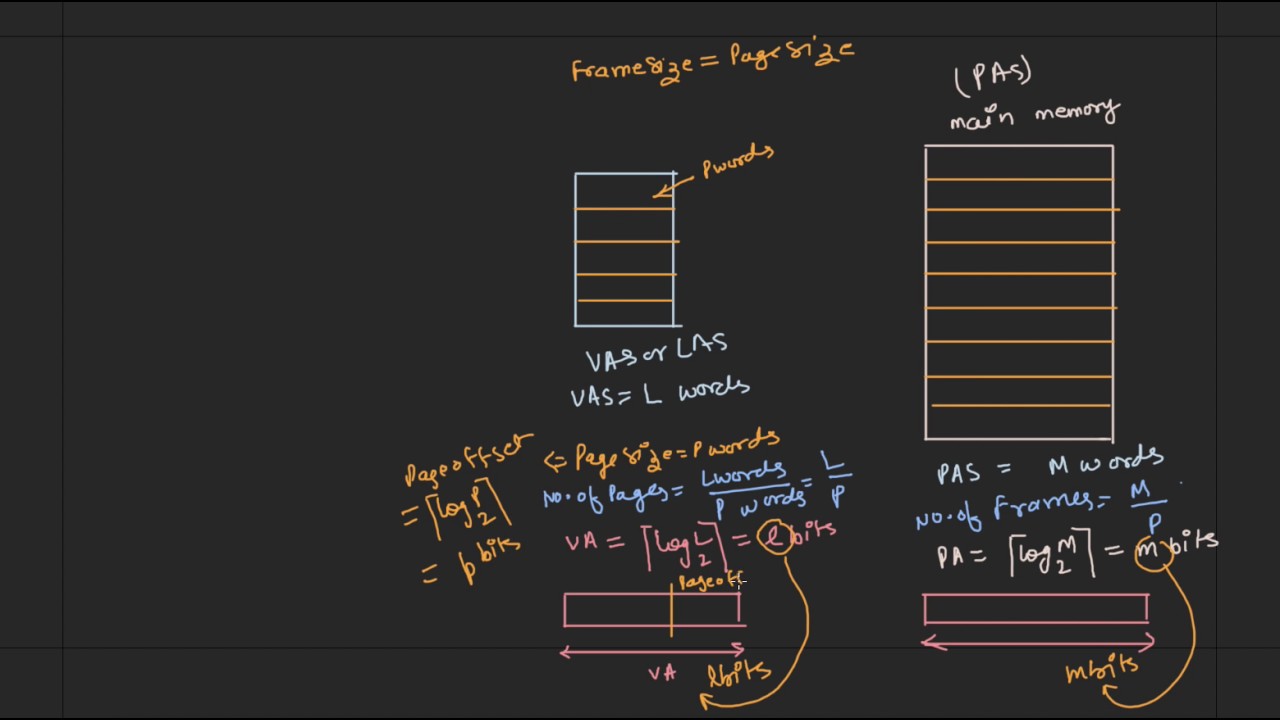 Framesize = Pagesize
(PAS)
main memory
P words
VAS or LAS
VAS = L words
Page offset
= ⌈log₂P⌉
= p bits
⇐ Page size = P words
No. of Pages = L words / P words = L / P
VA = ⌈log₂L⌉ = l bits
Page off
VA
l bits
PAS = M words
No. of Frames = M / P
PA = ⌈log₂M⌉ = m bits
m bits